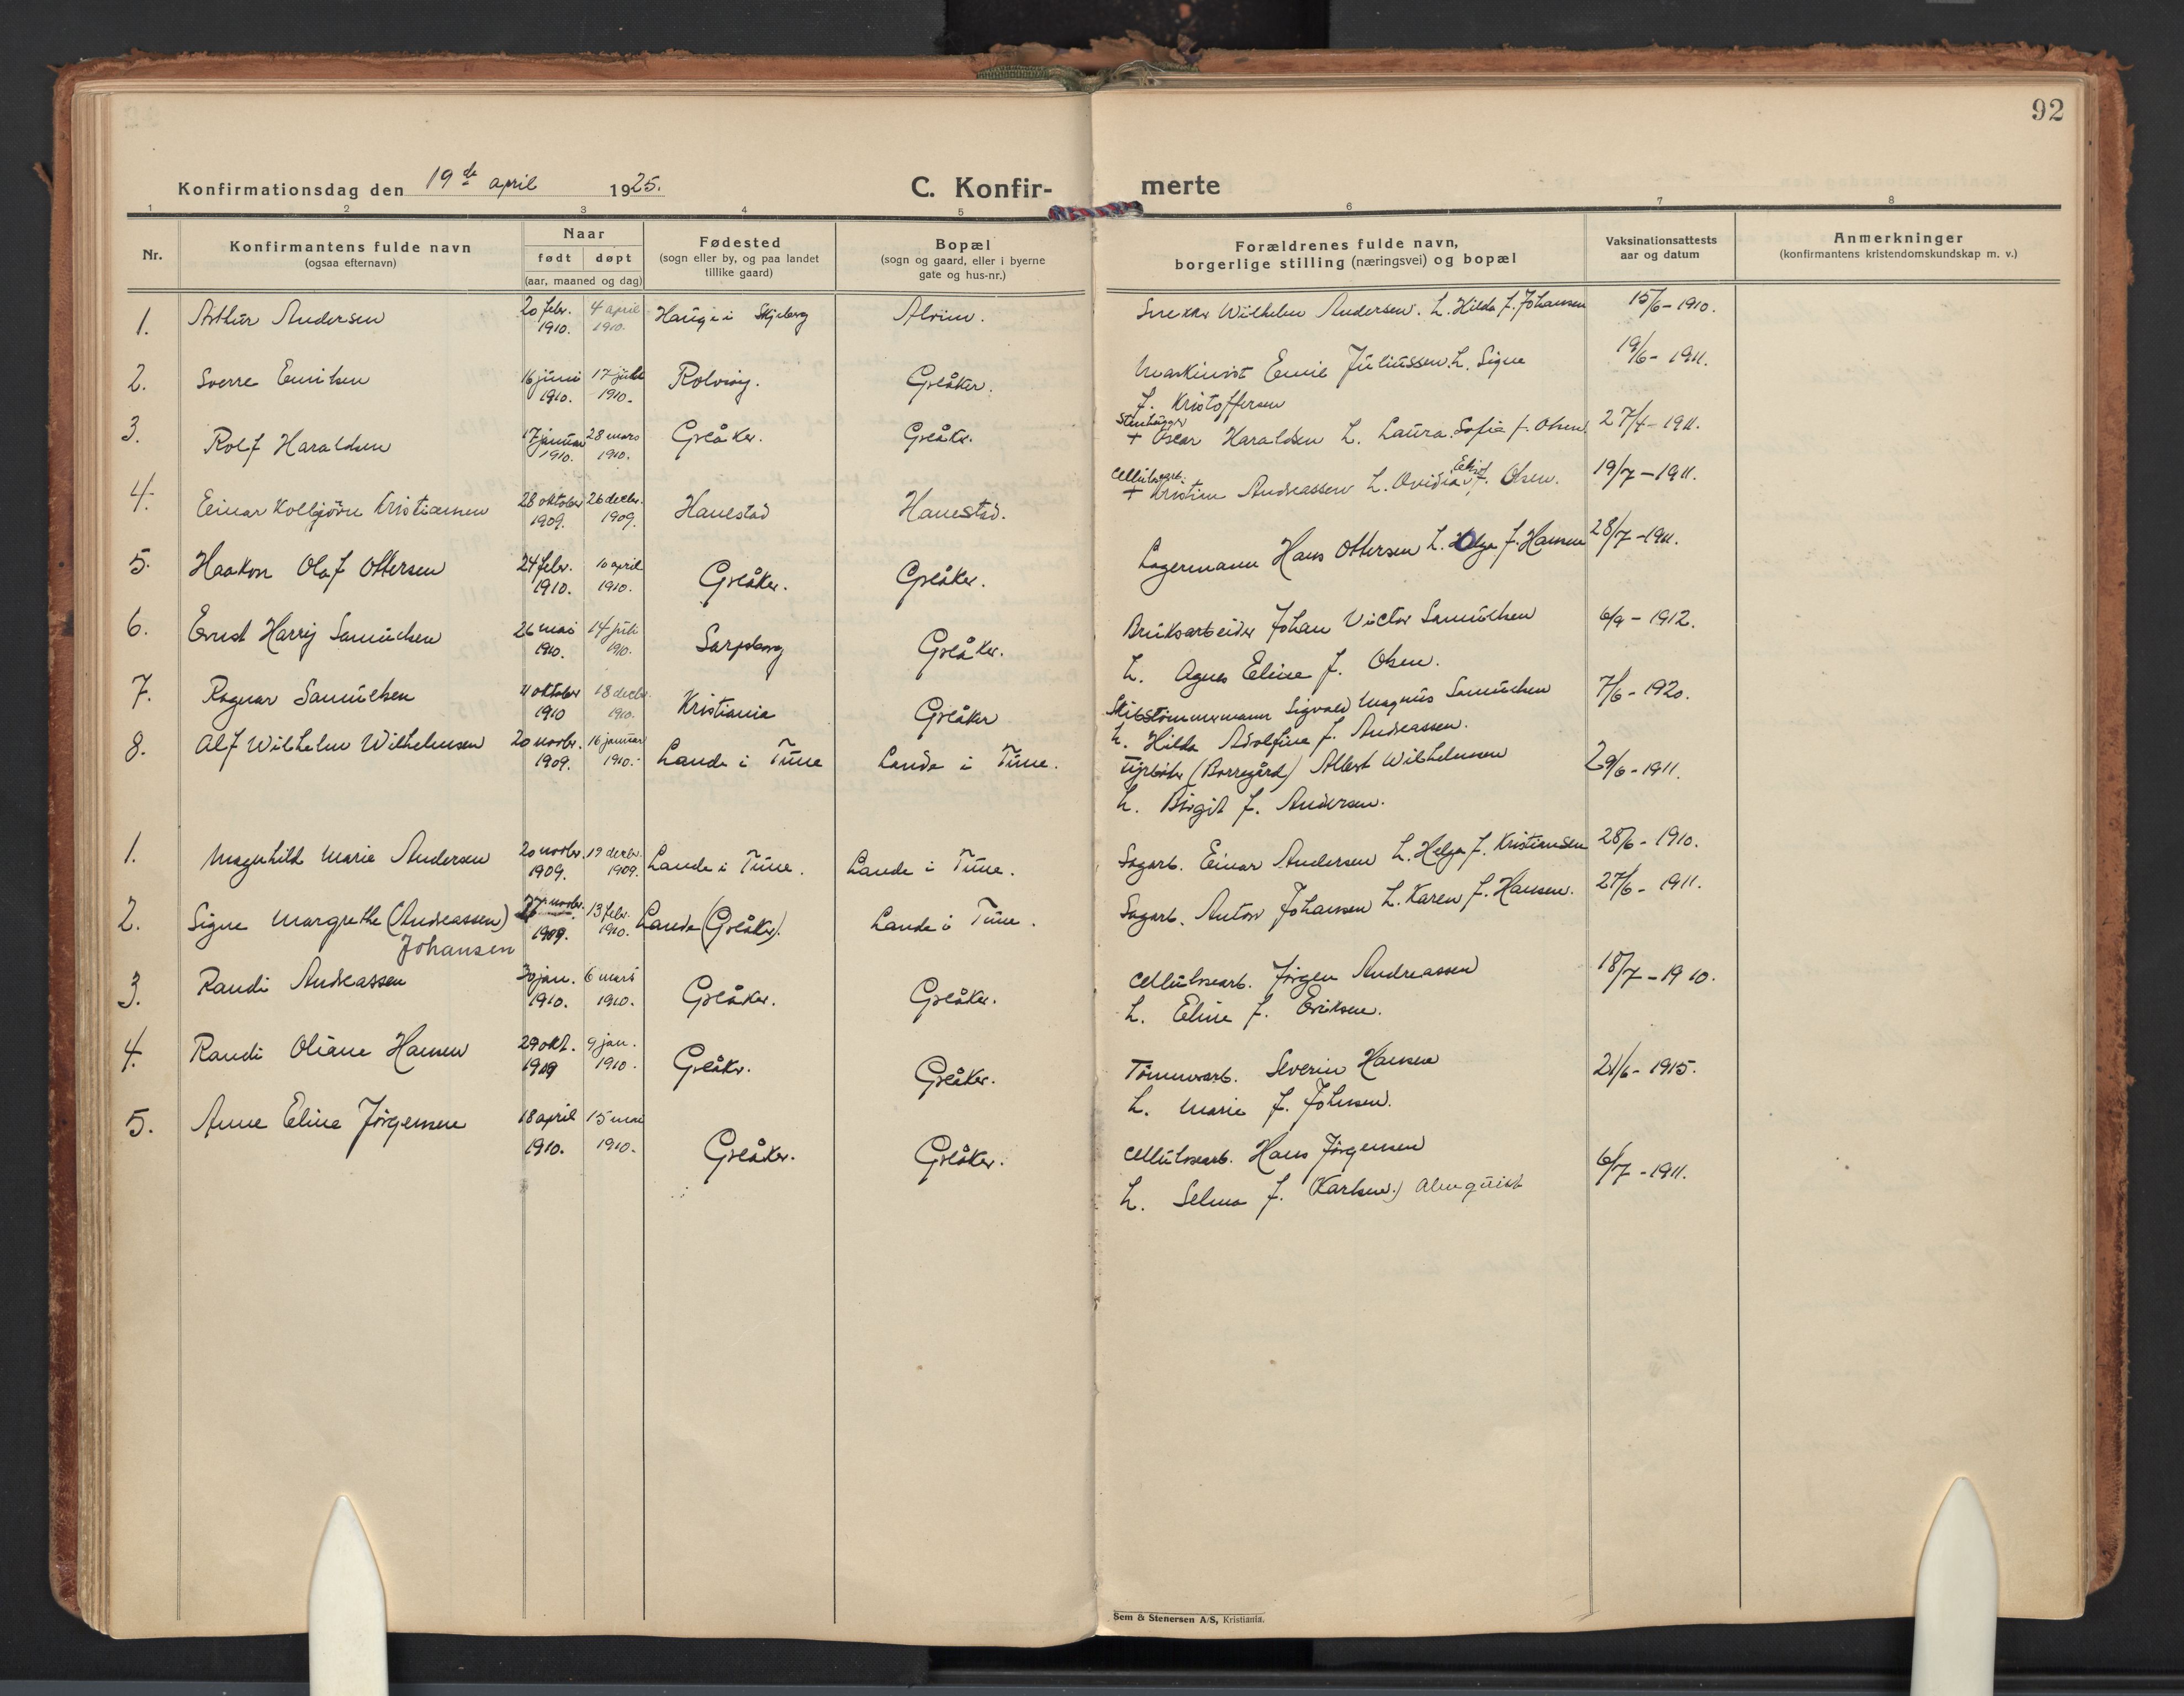 92
Konfirmationsdag den 19de april 1925.
C. Konfir-
merte
1 2 3 4 5 6 7 8
Nr.
Konfirmantens fulde navn
(ogsaa efternavn)
Naar
født døpt
(aar, maaned og dag)
Fødested
(sogn eller by, og paa landet
tillike gaard)
Bopæl
(sogn og gaard, eller i byerne
gate og hus-nr.)
Forældrenes fulde navn,
borgerlige stilling (næringsvei) og bopæl
Vaksinationsattests
aar og datum
Anmerkninger
(konfirmantens kristendomskundskap m. v.)
1. Arthur Andersen 20 febr. 1910. 4 april 1910. Hauge i Skjeberg Alvim. Wilhelm Andersen. h. Hilda f. Johansen 15/6 - 1910.
2. Sverre Emilsen 16 juni 1910. 17 juli 1910. Rolvsøy. Greåker. Maskinist Emil Juliussen. h. Signe
f. Kristoffersen 19/6 - 1911.
3. Rolf Haraldsen 17 januar 1910. 28 mars 1910. Greåker. Greåkr. Stenhugger
+ Oscar Haraldsen h. Laura Sofie f. Olsen. 27/4 - 1911.
4. Einar Kolbjörn Kristiansen 28 oktober 1909. 26 decbr. 1909. Hanestad Hanestad. Cellulosearb.
+ Kristian Andreassen h. Ovidia f. Olsen. 19/7 - 1911.
5. Haakon Olaf Ottersen 24 febr. 1910. 10 april 1910. Greåker. Greåker. Lagermann Hans Ottersen h. Olga f. Hansen 28/7 - 1911.
6. Ernst Harry Samuelsen 26 mai 1910. 14 juli 1910. Sarpsborg Greåker. Bruksarbeider Johan Victor Samuelsen
h. Agnes Eline f. Olsen. 6/9 - 1912.
7. Ragnar Samuelsen 4 oktober 1910 18 decbr. 1910. Kristiania Greåker Skibstömmermann Sigvald Magnus Samuelsen
h. Hilda Adolfine f. Andreassen. 7/6 - 1920.
8. Alf Wilhelm Wilhelmsen 20 novbr. 1909. 16 januar 1910. Lande i Tune Lande i Tune. Fyrböter (Borregård) Albert Wilhelmsen
h. Birgit f. Andersen. 29/6 - 1911.
1. Magnhild Marie Andersen 20 novbr. 1909. 19 decbr. 1909. Lande i Tune. Lande i Tune. Sagarb. Einar Andersen h. Helga f. Kristiansen 28/6 - 1910.
2. Signe Margrethe (Andreassen)
Johansen 27 novbr. 1909. 13 febr. 1910. Lande (Greåker). Lande i Tune. Sagarb. Anton Johansen h. Karen f. Hansen. 27/6 - 1911.
3. Randi Andreassen 30 jan. 1910. 6 mars 1910. Greåker. Greåker. Cellulosearb. Jörgen Andreassen
h. Eline f. Eriksen. 18/7 - 1910.
4. Randi Oliane Hansen 29 okt. 1909 9 jan. 1910. Greåkr. Greåker. Tömmerarb. Severin Hansen
h. Marie f. Johnsen. 21/6 - 1915.
5. Anne Eline Jörgensen 18 april 1910. 15 mai 1910. Greåker. Greåker. Cellulosearb. Hans Jörgensen
h. Selma f. (Karlsen.) Almquist 6/7 - 1911.
Sem & Stenersen A/S, Kristiania.